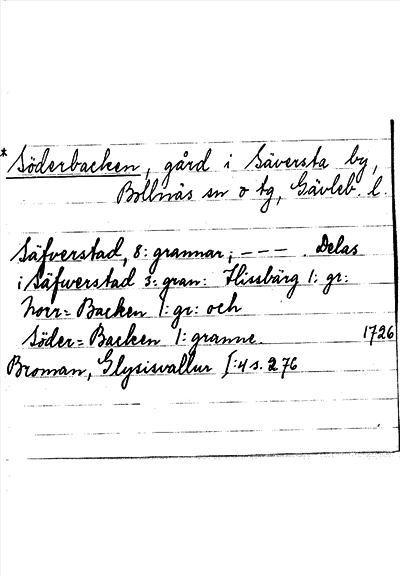 * Söderbacken, gård i Säversta by,
Bollnäs sn o tg, Gävleb. l.
Säfverstad, 8: grannar; --- . Delas
i Säfwerstad 3: gran: Flissbärg 1: gr:
Norr= Backen 1: gr: och
Söder= Backen 1: granne. 1726
Broman, Glysisvallur I: 4 s. 276